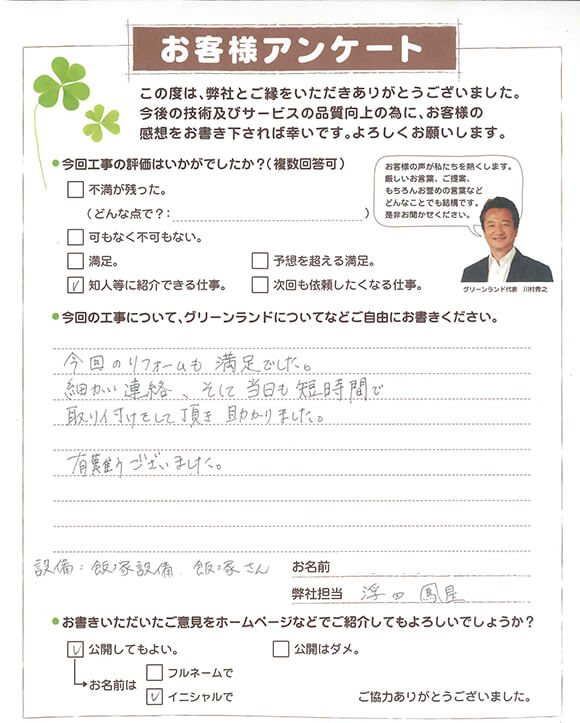 お客様アンケート
この度は、弊社とご縁をいただきありがとうございました。
今後の技術及びサービスの品質向上の為に、お客様の
感想をお書き下されば幸いです。よろしくお願いします。
●今回工事の評価はいかがでしたか?(複数回答可)
不満が残った。
(どんな点で?: )
可もなく不可もない。
満足。 予想を超える満足。
知人等に紹介できる仕事。 次回も依頼したくなる仕事。
お客様の声が私たちを熱くします。
厳しいお言葉、ご提案、
もちろんお誉めの言葉など
どんなことでも結構です。
是非お聞かせください。
グリーンランド代表 川村秀之
●今回の工事について、グリーンランドについてなどご自由にお書きください。
今回のリフォームも 満足でした。
細かい連絡、そして当日も短時間で
取り付けをして頂き 助かりました。
有難うございました。
設備:飯塚設備 飯塚さん
お名前
弊社担当 浮田
●お書きいただいたご意見をホームページなどでご紹介してもよろしいでしょうか?
公開してもよい。 公開はダメ。
お名前は フルネームで
イニシャルで
ご協力ありがとうございました。